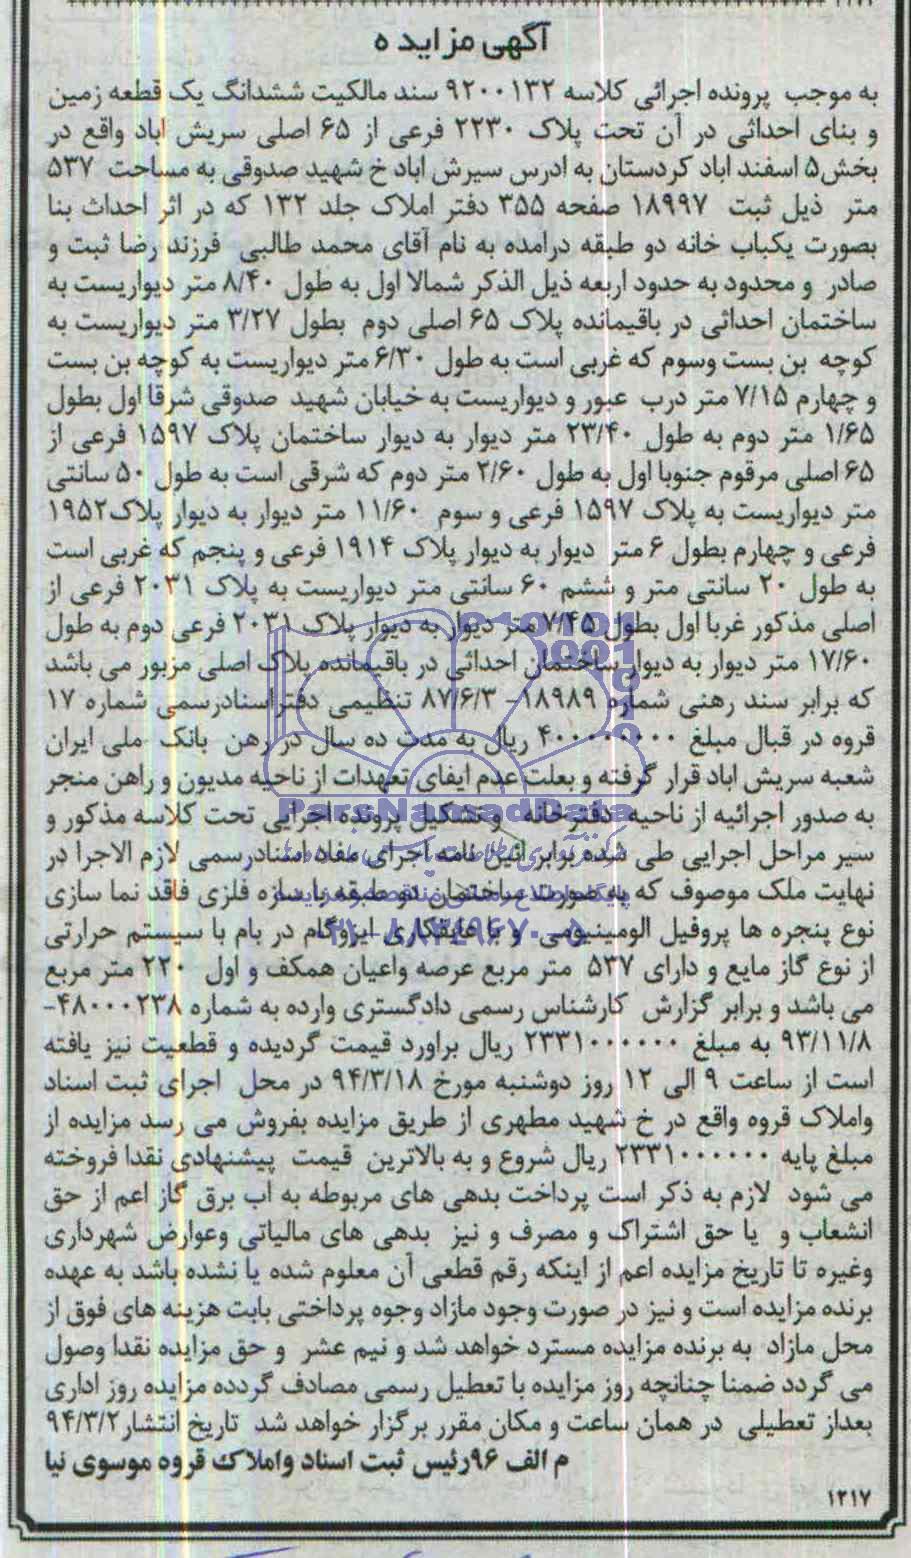 آگهی مزایده
به موجب پرونده اجرائی کلاسه ۹۲۰۰۱۳۲ سند مالکیت ششدانگ یک قطعه زمین
و بنای احداثی در آن تحت پلاک ۲۲۳۰ فرعی از ۶۵ اصلی سریش اباد واقع در
بخش۵ اسفند اباد کردستان به ادرس سیرش اباد خ شهید صدوقی به مساحت ۵۳۷
متر ذیل ثبت ۱۸۹۹۷ صفحه ۳۵۵ دفتر املاک جلد ۱۳۲ که در اثر احداث بنا
بصورت یکباب خانه دو طبقه درامده به نام آقای محمد طالبی فرزند رضا ثبت و
صادر و محدود به حدود اربعه ذیل الذکر شمالا اول به طول ۸/۴۰ متر دیواریست به
ساختمان احداثی در باقیمانده پلاک ۶۵ اصلی دوم بطول ۳/۲۷ متر دیواریست به
کوچه بن بست وسوم که غربی است به طول ۶/۳۰ متر دیواریست به کوچه بن بست
و چهارم ۷/۱۵ متر درب عبور و دیواریست به خیابان شهید صدوقی شرقا اول بطول
۱/۶۵ متر دوم به طول ۲۳/۴۰ متر دیوار به دیوار ساختمان پلاک ۱۵۹۷ فرعی از
۶۵ اصلی مرقوم جنوبا اول به طول ۲/۶۰ متر دوم که شرقی است به طول ۵۰ سانتی
متر دیواریست به پلاک ۱۵۹۷ فرعی و سوم ۱۱/۶۰ متر دیوار به دیوار پلاک۱۹۵۲
فرعی و چهارم بطول ۶ متر دیوار به دیوار پلاک ۱۹۱۴ فرعی و پنجم که غربی است
به طول ۲۰ سانتی متر و ششم ۶۰ سانتی متر دیواریست به پلاک ۲۰۳۱ فرعی از
اصلی مذکور غربا اول بطول ۷/۴۵ متر دیوار به دیوار پلاک ۲۰۳۱ فرعی دوم به طول
۱۷/۶۰ متر دیوار به دیوار ساختمان احداثی در باقیمانده پلاک اصلی مزبور می باشد
که برابر سند رهنی شماره ۱۸۹۸۹- ۸۷/۶/۳ تنظیمی دفتراسنادرسمی شماره ۱۷
قروه در قبال مبلغ ۴۰۰۰۰۰۰۰۰ ریال به مدت ده سال در رهن بانک ملی ایران
شعبه سریش اباد قرار گرفته و بعلت عدم ایفای تعهدات از ناحیه مدیون و راهن منجر
به صدور اجرائیه از ناحیه دفترخانه و تشکیل پرونده اجرایی تحت کلاسه مذکور و
سیر مراحل اجرایی طی شده برابر ائین نامه اجرای مفاد اسنادرسمی لازم الاجرا در
نهایت ملک موصوف که به صورت ساختمان دو طبقه با سازه فلزی فاقد نما سازی
نوع پنجره ها پروفیل الومینیومی و با عایقکاری ایزوگام در بام با سیستم حرارتی
از نوع گاز مایع و دارای ۵۳۷ متر مربع عرصه واعیان همکف و اول ۲۲۰ متر مربع
می باشد و برابر گزارش کارشناس رسمی دادگستری وارده به شماره ۴۸۰۰۰۲۳۸-
۹۳/۱۱/۸ به مبلغ ۲۳۳۱۰۰۰۰۰۰ ریال براورد قیمت گردیده و قطعیت نیز یافته
است از ساعت ۹ الی ۱۲ روز دوشنبه مورخ ۹۴/۳/۱۸ در محل اجرای ثبت اسناد
واملاک قروه واقع در خ شهید مطهری از طریق مزایده بفروش می رسد مزایده از
مبلغ پایه ۲۳۳۱۰۰۰۰۰۰ ریال شروع و به بالاترین قیمت پیشنهادی نقدا فروخته
می شود لازم به ذکر است پرداخت بدهی های مربوطه به اب برق گاز اعم از حق
انشعاب و یا حق اشتراک و مصرف و نیز بدهی های مالیاتی وعوارض شهرداری
وغیره تا تاریخ مزایده اعم از اینکه رقم قطعی آن معلوم شده یا نشده باشد به عهده
برنده مزایده است و نیز در صورت وجود مازاد وجوه پرداختی بابت هزینه های فوق از
محل مازاد به برنده مزایده مسترد خواهد شد و نیم عشر و حق مزایده نقدا وصول
می گردد ضمنا چنانچه روز مزایده با تعطیل رسمی مصادف گردده مزایده روز اداری
بعداز تعطیلی در همان ساعت و مکان مقرر برگزار خواهد شد تاریخ انتشار۹۴/۳/۲
م الف ۹۶رئیس ثبت اسناد واملاک قروه موسوی نیا
۱۲۱۷
ParsNamadData
۰۲۱-۸۸۳۴۹۶۷۰-۵